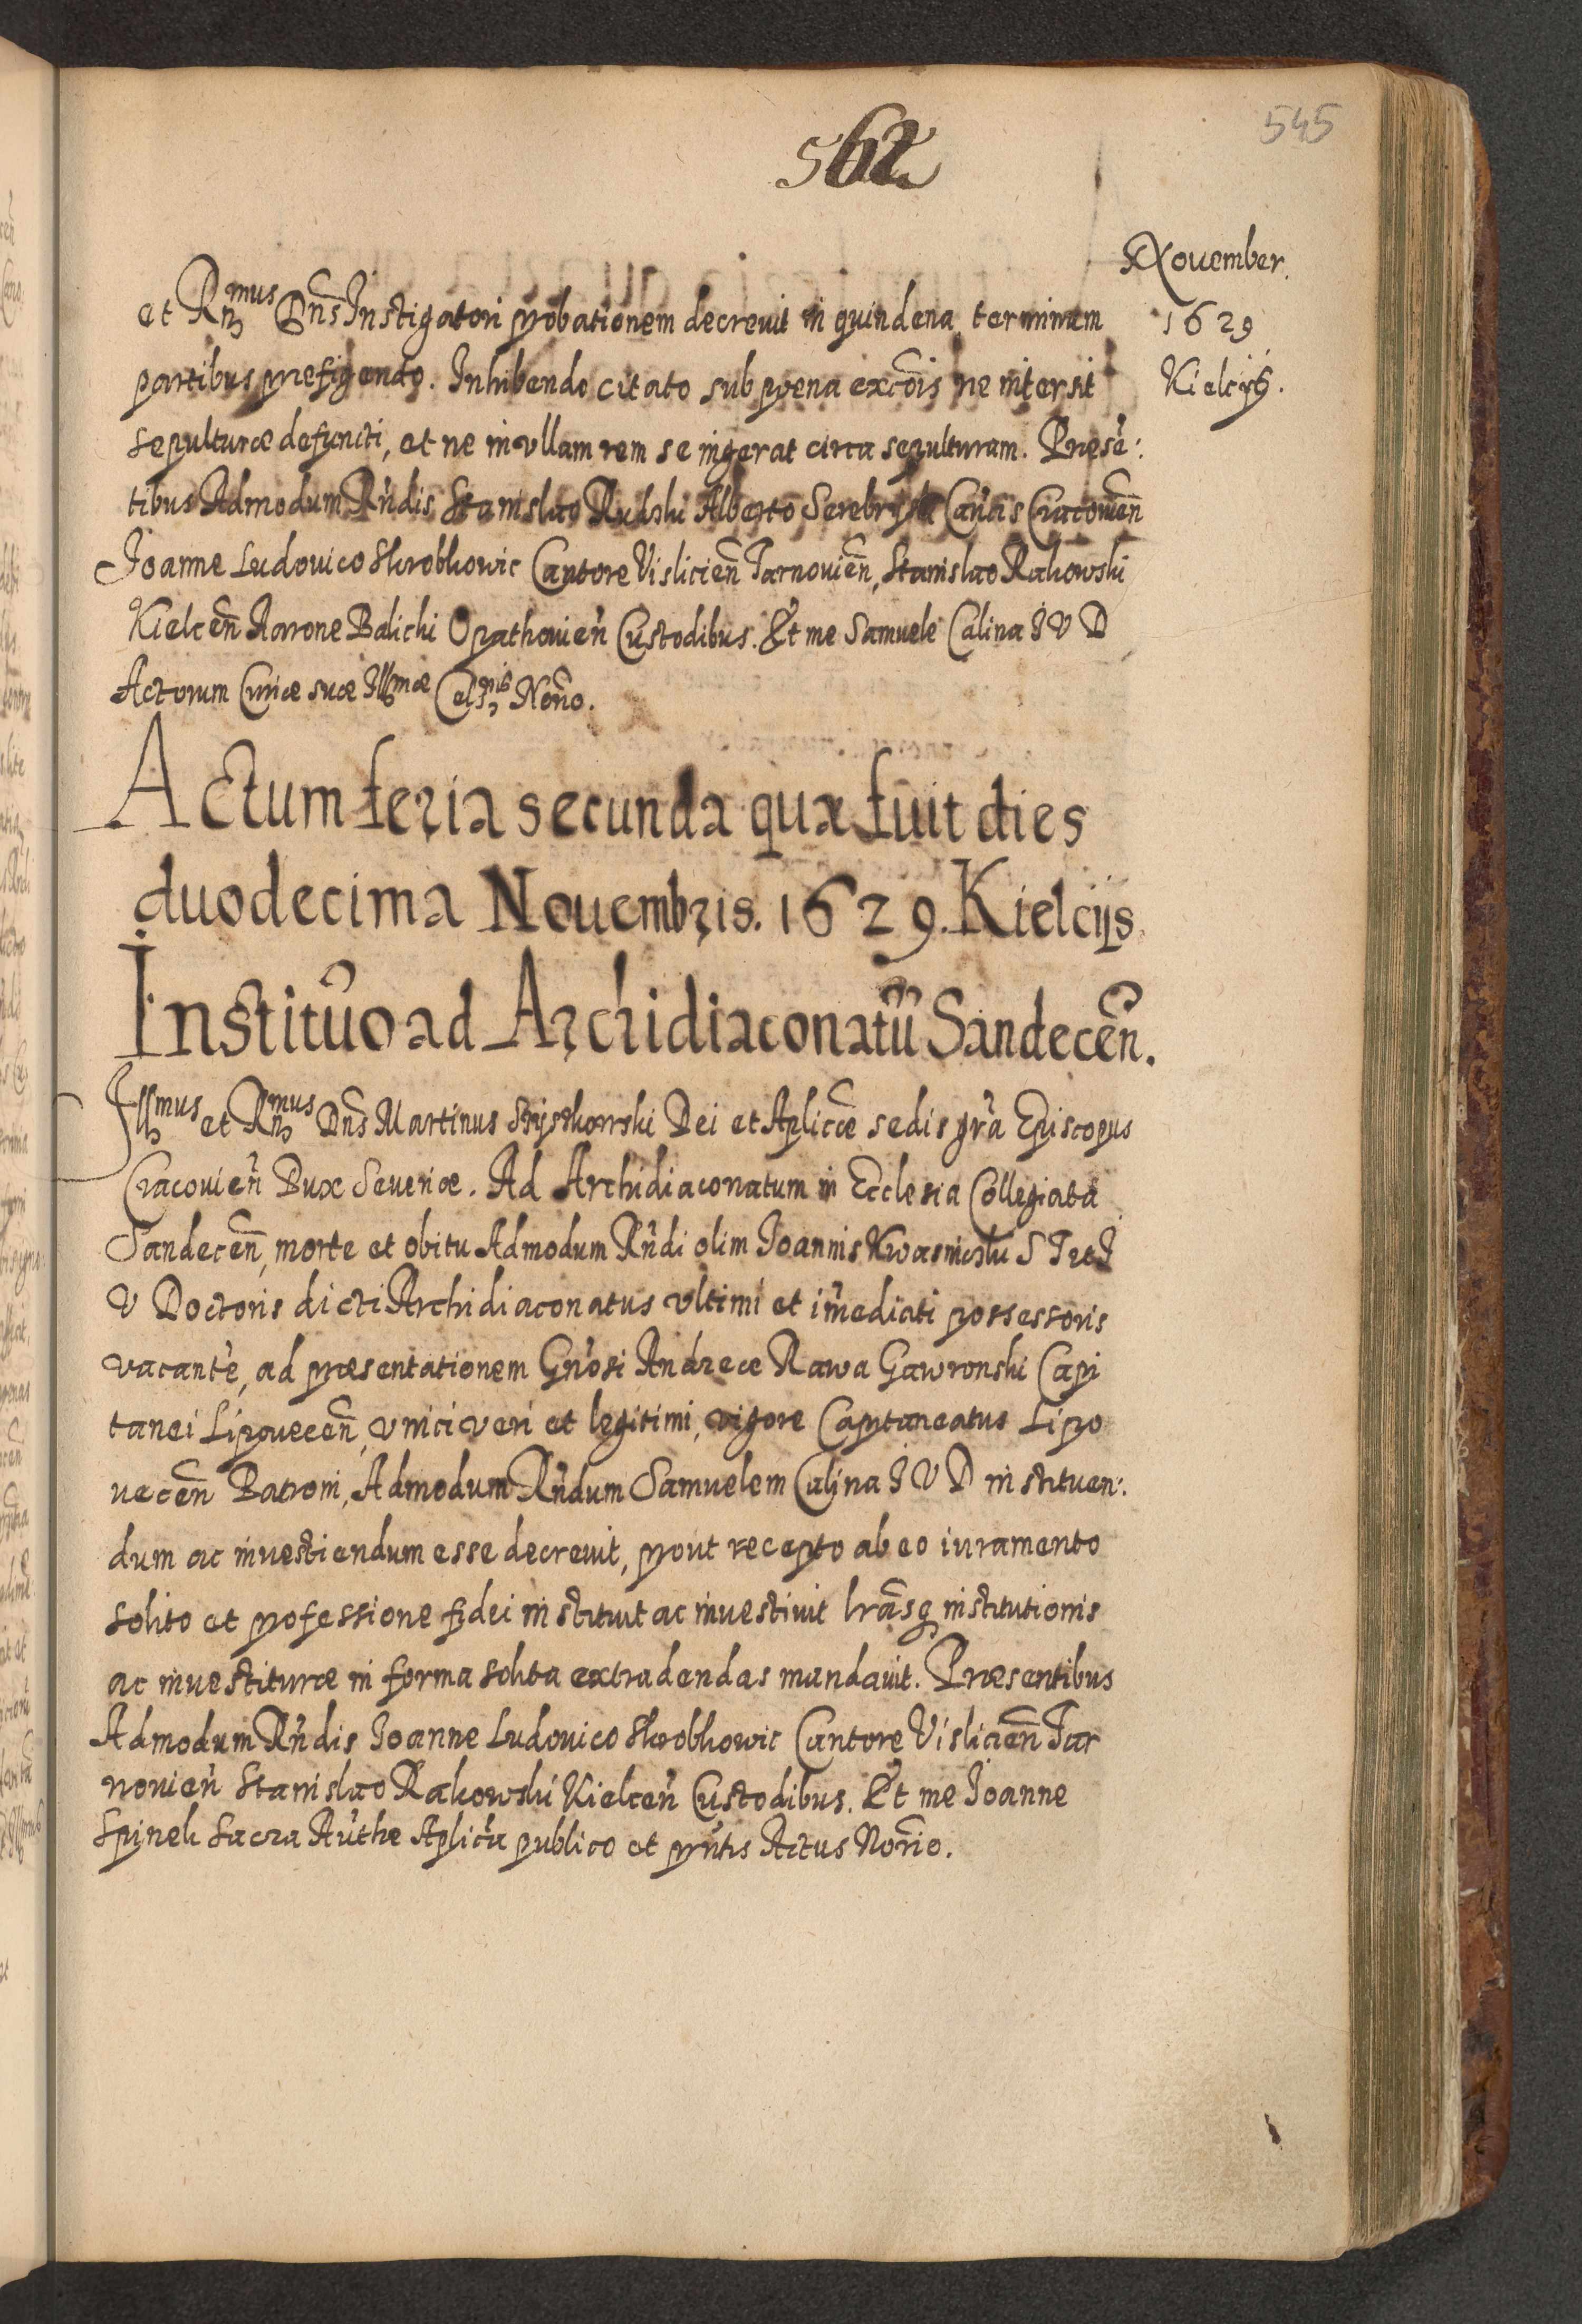 562
545
November
1629
Kielcijs.
et Rmus Dns Instigatori probationem decrevit in quindena, terminum
partibus prefigendo. Inhibendo citato sub poena excois ne intersit
sepulturæ defuncti, et ne in vllam rem se ingerat circa sepulturam. Præsẽ:
tibus Admodum Rndis Stanislao Alberto Serebryski Cantis Cracowien
Joanne Ludovico Skrobkowic Cantore Vislicien Tarnovien, Stanislao Rakowski
Kielcen Aarone Balicki Opathovien Custodibus. Et me Samuele Calina I V D
Actorum Curiæ suæ Illmæ Celnis Norio.
Actum feria secunda quæ fuit dies
duodecima Nouembris. 1629. Kielcijs.
Institũo ad Archidiaconatũ Sandecen̄.
Illmus et Rmus Dns Martinus Szyszkowski Dei et Aplicæ sedis gra Episcopus
Cracouien Dux Seueriæ. Ad Archidiaconatum in Ecclesia Collegiata
Sandecen, morte et obitu Admodum Rndi olim Joannis Kwasnicski S T et I
V Doctoris dicti Archidiaconatus vltimi et imediati possessoris
vacante, ad præsentationem Gnosi Andreæ Rawa Gawronski Capi
tanei Lipouecen, vnici veri et legitimi, vigore Capitaneatus Lipo
uecen Patroni, Admodum Rndum Samuelem Calina I V D instituen:
dum ac inuestiendum esse decreuit, prout recepto ab eo iuramento
solito et professione fidei instituit ac inuestiuit lrasq institutionis
ac inuestituræ in forma solita extradendas mandauit. Præsentibus
Admodum Rndis Joanne Ludouico Skrobkowic Cantore Vislicien Tar
nouien Stanislao Rakowski Kielcen Custodibus. Et me Joanne
Spinek Sacra Authe Aplica publico et pntis Actus Norio.